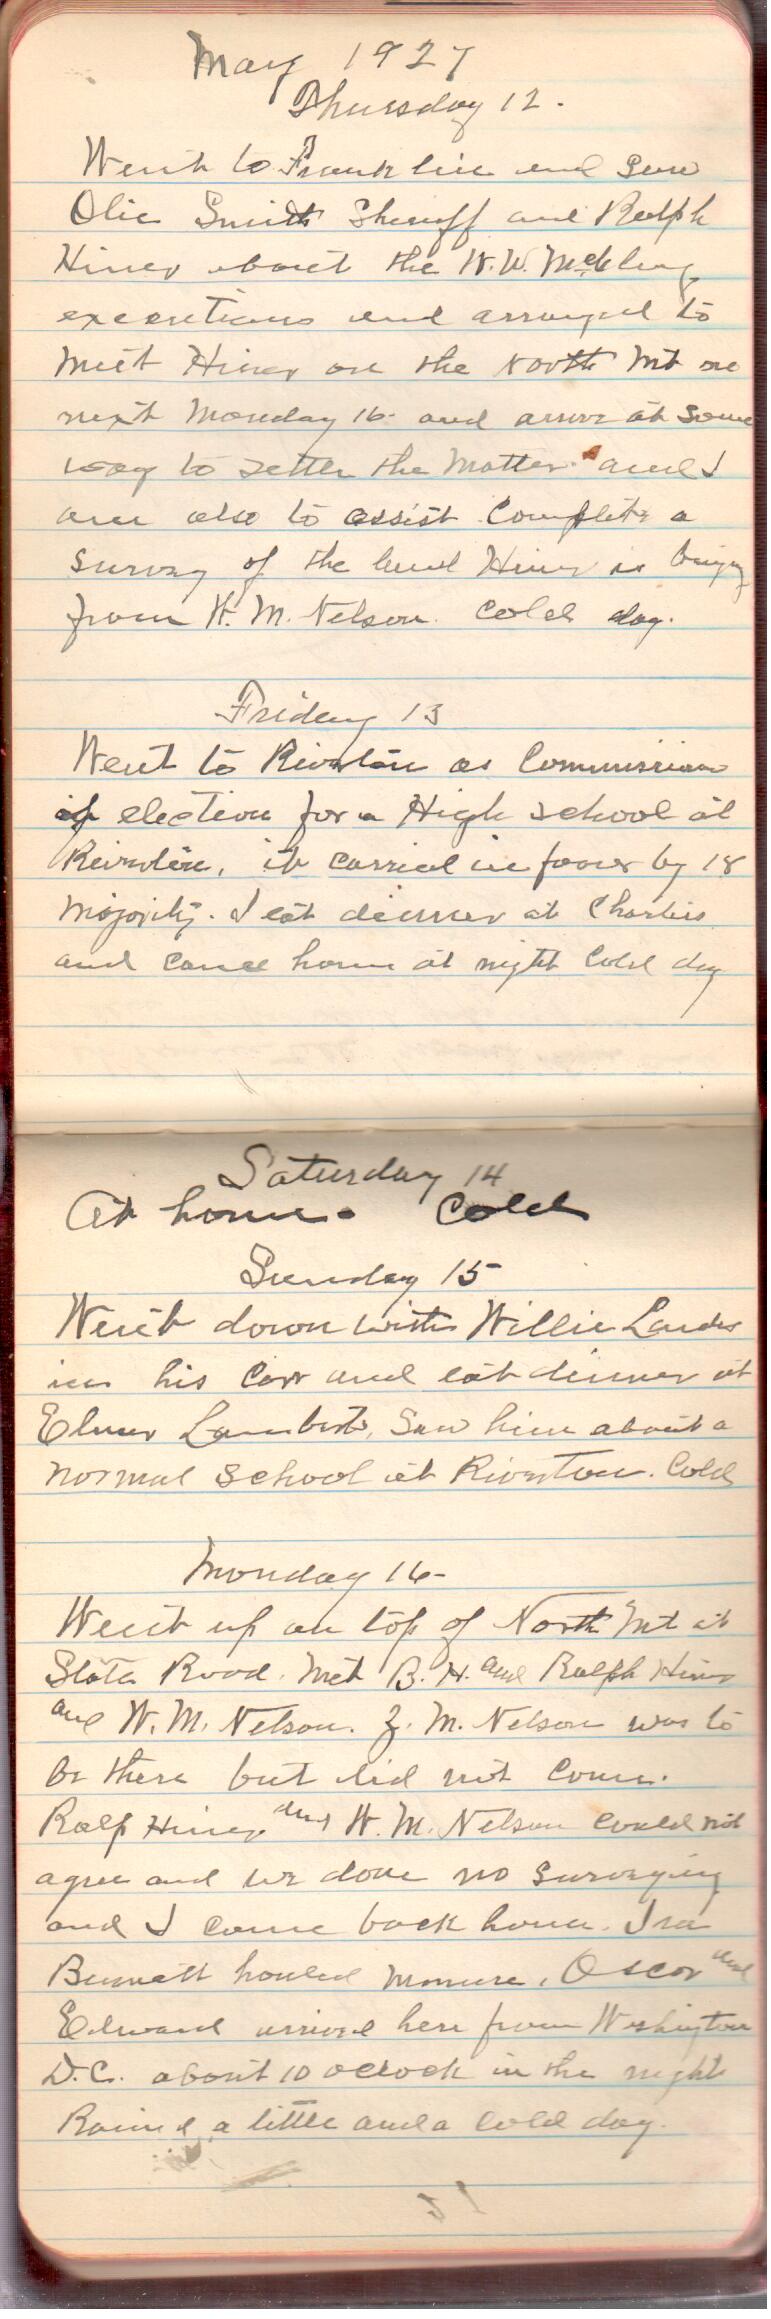 May 1927
Thursday 12.
Went to Franklin and saw
Olie Smith Sheriff and Ralph
Hiner about the W.W.
executions and arranged to
meet Hiner on the North Mt on
next Monday 16 and arrive at some
way to settle the matter and I
am also to assist complete a
survey of the land Hiner is buying
from W. M. Nelson. Cold day.
Friday 13
Went to Riverton as Commissioner
of election for a High school at
Riverton, it carried in favor by 18
majority. I eat dinner at Charlies
and came home at night Cold day
Saturday 14
At home. Cold
Sunday 15
Went down with Willie
in his car and eat dinner at
Elmer Lamberts, saw him about a
normal school at Riverton. Cold
Monday 16
Went up on top of North Mt at
State Road. Met B. H. and Ralph Hiner
and W. M. Nelson. Z. M. Nelson was to
be there but did not come.
Ralp Hiner and W. M. Nelson could not
agree and we done no surveying
and I come back home. Ira
Bennett houled manure. Oscor and
Edward arrived here from Washington
D.C. about 10 oclock in the night
Rained a little and a cold day.